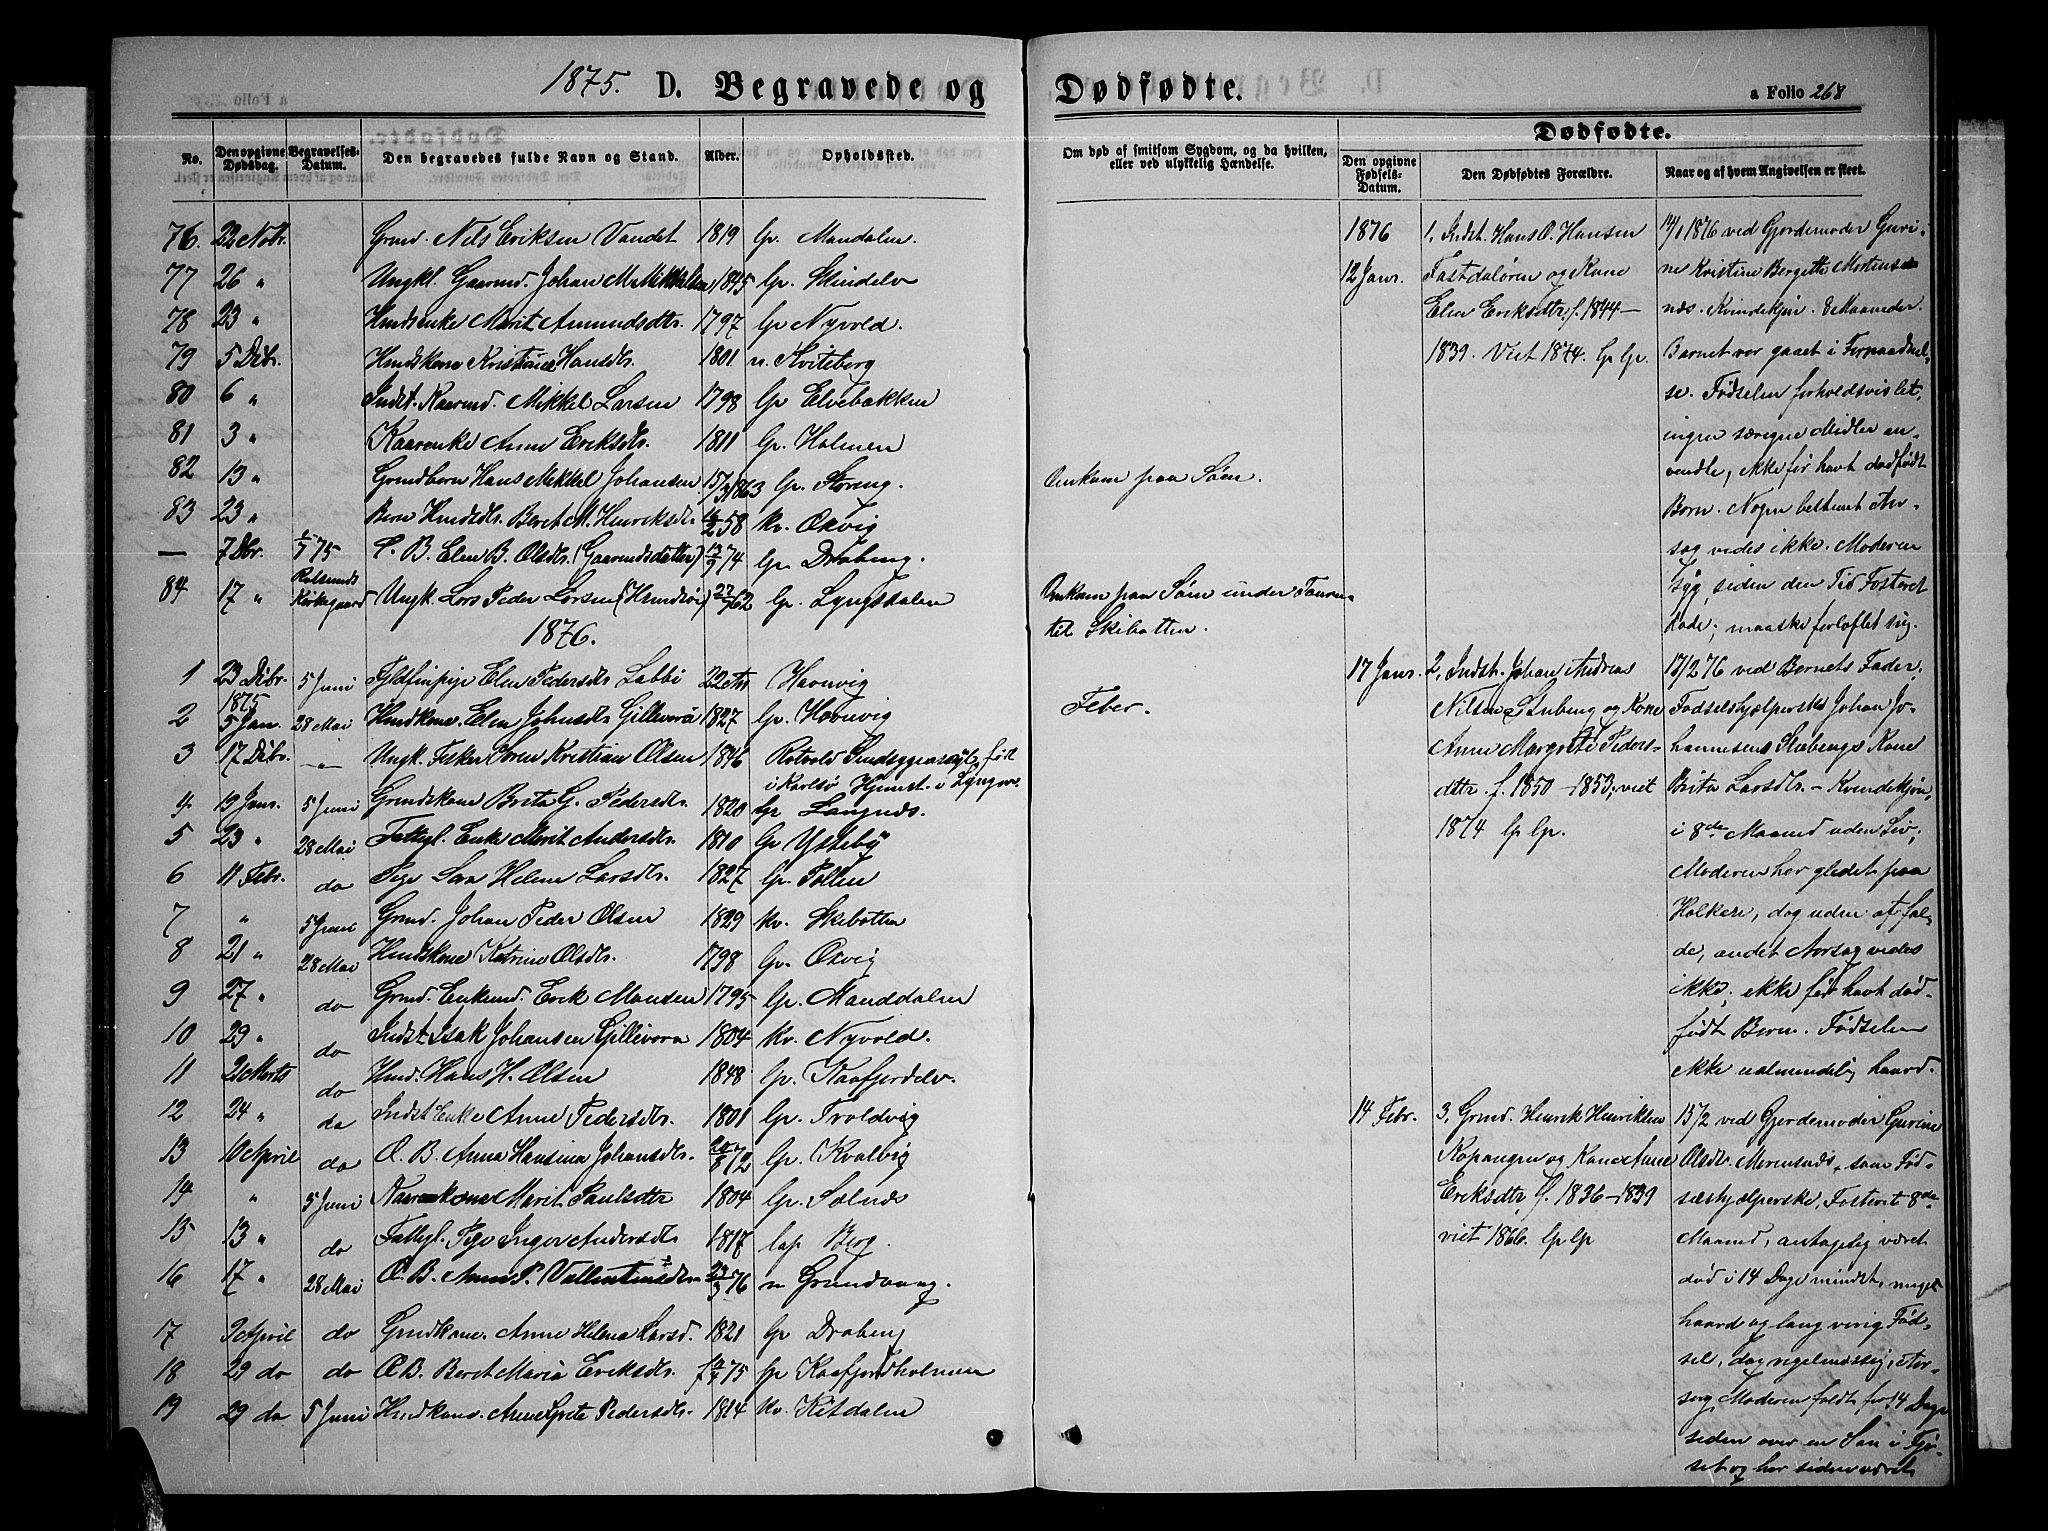 1875. D. Begravede og Dødfødte.
a Folio 268
No.
Den opgivne Dødsdag.
Begravelses-Datum.
Den begravedes fulde Navn og Stand.
Alder.
Opholdssted.
Om død af smitsom Sygdom, og da hvilken,
eller ved ulykkelig Hændelse.
Dødfødte.
Den opgivne Fødsels-Datum.
Den Dødfødtes Forældre.
Naar og af hvem Angivelsen er skeet.
76. 22 Nobr. Grmd. Nils Eriksen Vandet 1819 lp. Mandalen.
77 26 " Ungkl. Gaarmd. Johan M. Mikkelsen 1845 lp. Skindelv
78 23 " Hmdsenke Marit Amundsdtr. 1797 lp Nyvold.
79 5 Dibr. Hmdkone Kristine Hansdtr. 1801 n. Kviteberg
80 6 " Indst. Kaarmd. Mikkel Larsen 1798 lp Elvebakken
81 3 " Kaarenke Anne Eriksdtr. 1811 lp. Holmen
82 13 " Grmdbarn Hans Mikkel Johansen 15/3 1863 lp. Storeng.
Omkom paa Søen.
83 23 " Barn Hmdsdtr. Beret M. Henriksdtr. 58 kv. Oxvig
— 7 Dbr. 75 Elen B. Olsdtr. (Gaarmdsdatter) 74 lp. Drabeng.
84 17 " Rotsunds Kirkegaard Ungk. Lars Peder Larsen 62 lp. Lyngsdalen
Omkom paa Søen under Touren
til Skibotten.
1876.
1 23 Dibr. 1875 5 Juni Fjeldfinpige Elen Pedersdtr Labbi 22 Aar Havnvig
2 5 Jan. 28 Mai Hmdkone Elen Johnsdtr Gillivara 1827 lp. Havnvig
Feber.
3 17 Dibr. — " — Ungk. Fisker Søren Kristian Olsen 1846 Rotvold Sindsygeasyl, født
i Karlsø Hjemst. i Lyngen
4 19 Janr. 5 Juni Grmdskone Brita G. Pedersdtr. 1820 lp Langnæs.
5 23 " 28 Mai Fattigl. Enke Marit Andersdtr. 1810 lp Ysteby
6 11 Febr. do Pige Sara Helene Larsdtr. 1827 lp. Pollen
7 " 5 Juni Grmd. Johan Peder Olsen 1829 kv. Skibotten
8 21 " 28 Mai Hmdskone Katrine Olsdtr. 1798 lp. Oxvig
9 27 " do Grmd. Enkemd. Erik Monsen 1795 lp. Manddalen
10 29 " do Indst Isak Johansen Gillivara 1804 kv. Nyvold.
11 2 Marts do Hmd. Hans H. Olsen 1848 lp. Kaafjordelv.
12 24 " do Indst Enke Anne Pedersdtr. 1801 lp. Troldvig
13 10 April do O. B. Anna Hansina Johansdtr. 20/8 72 lp. Kvalvig
14 " 5 Juni Kaarenkone Marit Paulsdtr 1804 lp. Solnæs
15 13 " do Fattigl. Pige Inger Andersdtr. 1817 lap Berg.
16 17 " 28 Mai O. B. Anne P. Vallentinsdtr. 23/3 76 n Grundvaag.
17 9 April do Grmdkone. Anne Helena Larsd. 1821 lp Drabeng
18 29 do do O B. Beret Maria Eriksdtr. 75 lp Kaafjordholmen
19 29 do 5 Juni Hmdkone. Ane Grete Pedersdtr. 1814 kv. Kitdalen
1876
12 Janr.
1, Indst. Hans O. Hansen
Fastdalören og Kone
Elen Eriksdtr. f. 1844 —
1839. Viet 1874. lp lp.
14/1 1876 ved Gjordemoder Guri-
ne Kristine Bergitte Mortens-
næs. Kvindekjøn. 8 Maaneder.
Barnet var gaaet i Forraadnel-
se. Fødselen forholdsvis let,
ingen særegne Midler an-
vendte, ikke før havt dødfødt
Barn. Nogen bestemt Aar-
sag vides ikke. Moderen
syg, siden den Tid Fosteret
døde; maaske forløftet sig.
17 Janr.
2, Indst. Johan Andreas
Nilsen Stubeng og Kone
Anne Margrete Peders-
dttr. f. 1850 — 1853, viet
1874 lp lp.
17/2 76 ved Barnets Fader,
Fødselshjælperske Johan Jo-
hannesens Skæbengs Kone
Brita Larsdtr. — Kvindekjøn,
i 8de Maaned uden Liv;
Moderen har glidet paa
Holken, dog uden at fal-
de, andet Aarsag vides
ikke; ikke før havt død-
født Barn. Fødselen
ikke ualmindelig haard.
14 Febr.
3, Grmd. Henrik Henriksen
Kopangen og Kone Anne
Eriksdtr, f. 1836 — 1839
viet 1866. lp lp
15/2 ved Gjordemoder Gurine
Olsdtr. Morensnæs, som Fød-
selshjælperske, Fosteret 8de
Maaned, antagelig været
død i 14 Dage mindst, meget
haard og langvirig Fød-
sel, dog regelmæssig, Aar-
sag Moderen faldt for 14 Dage
siden over en Sau i Fjø-
set og har siden været